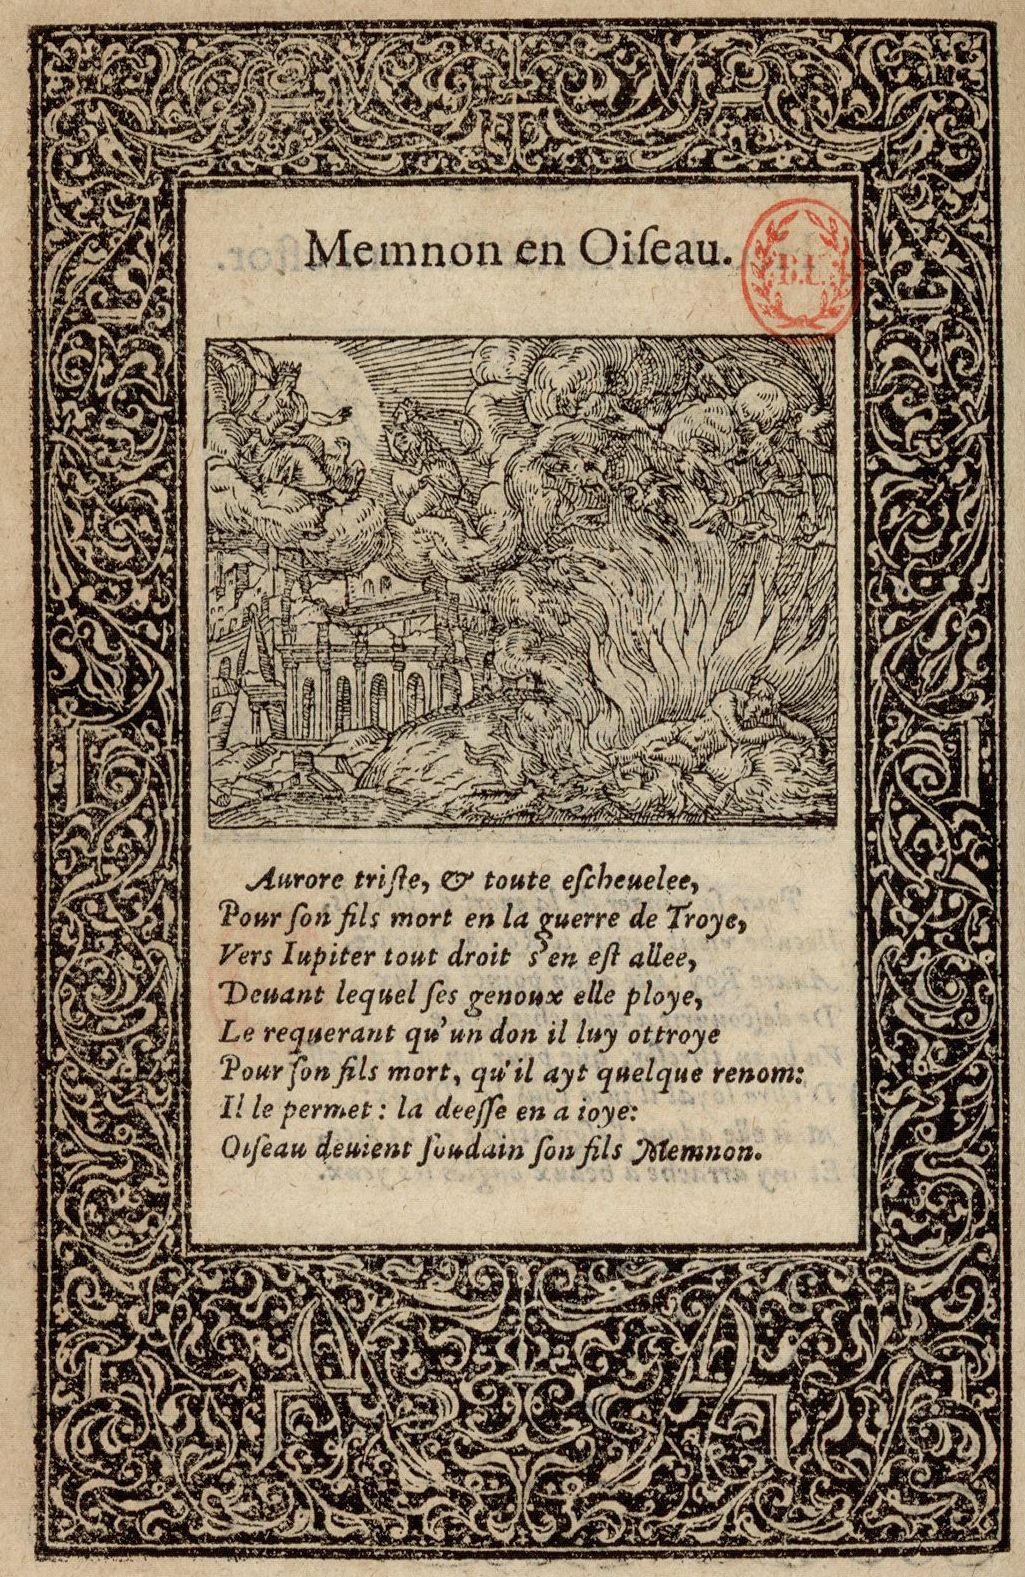 Memnon en Oiſeau.
B.L.
Aurore triſte, & toute eſcheuelee,
Pour ſon fils mort en la guerre de Troye,
Vers Iupiter tout droit s'en eſt allee,
Deuant lequel ſes genoux elle ploye,
Le requerant qu'un don il luy ottroye
Pour ſon fils mort, qu'il ayt quelque renom:
Il le permet: la deeſſe en a ioye:
Oiſeau deuient ſoudain ſon fils Memnon.